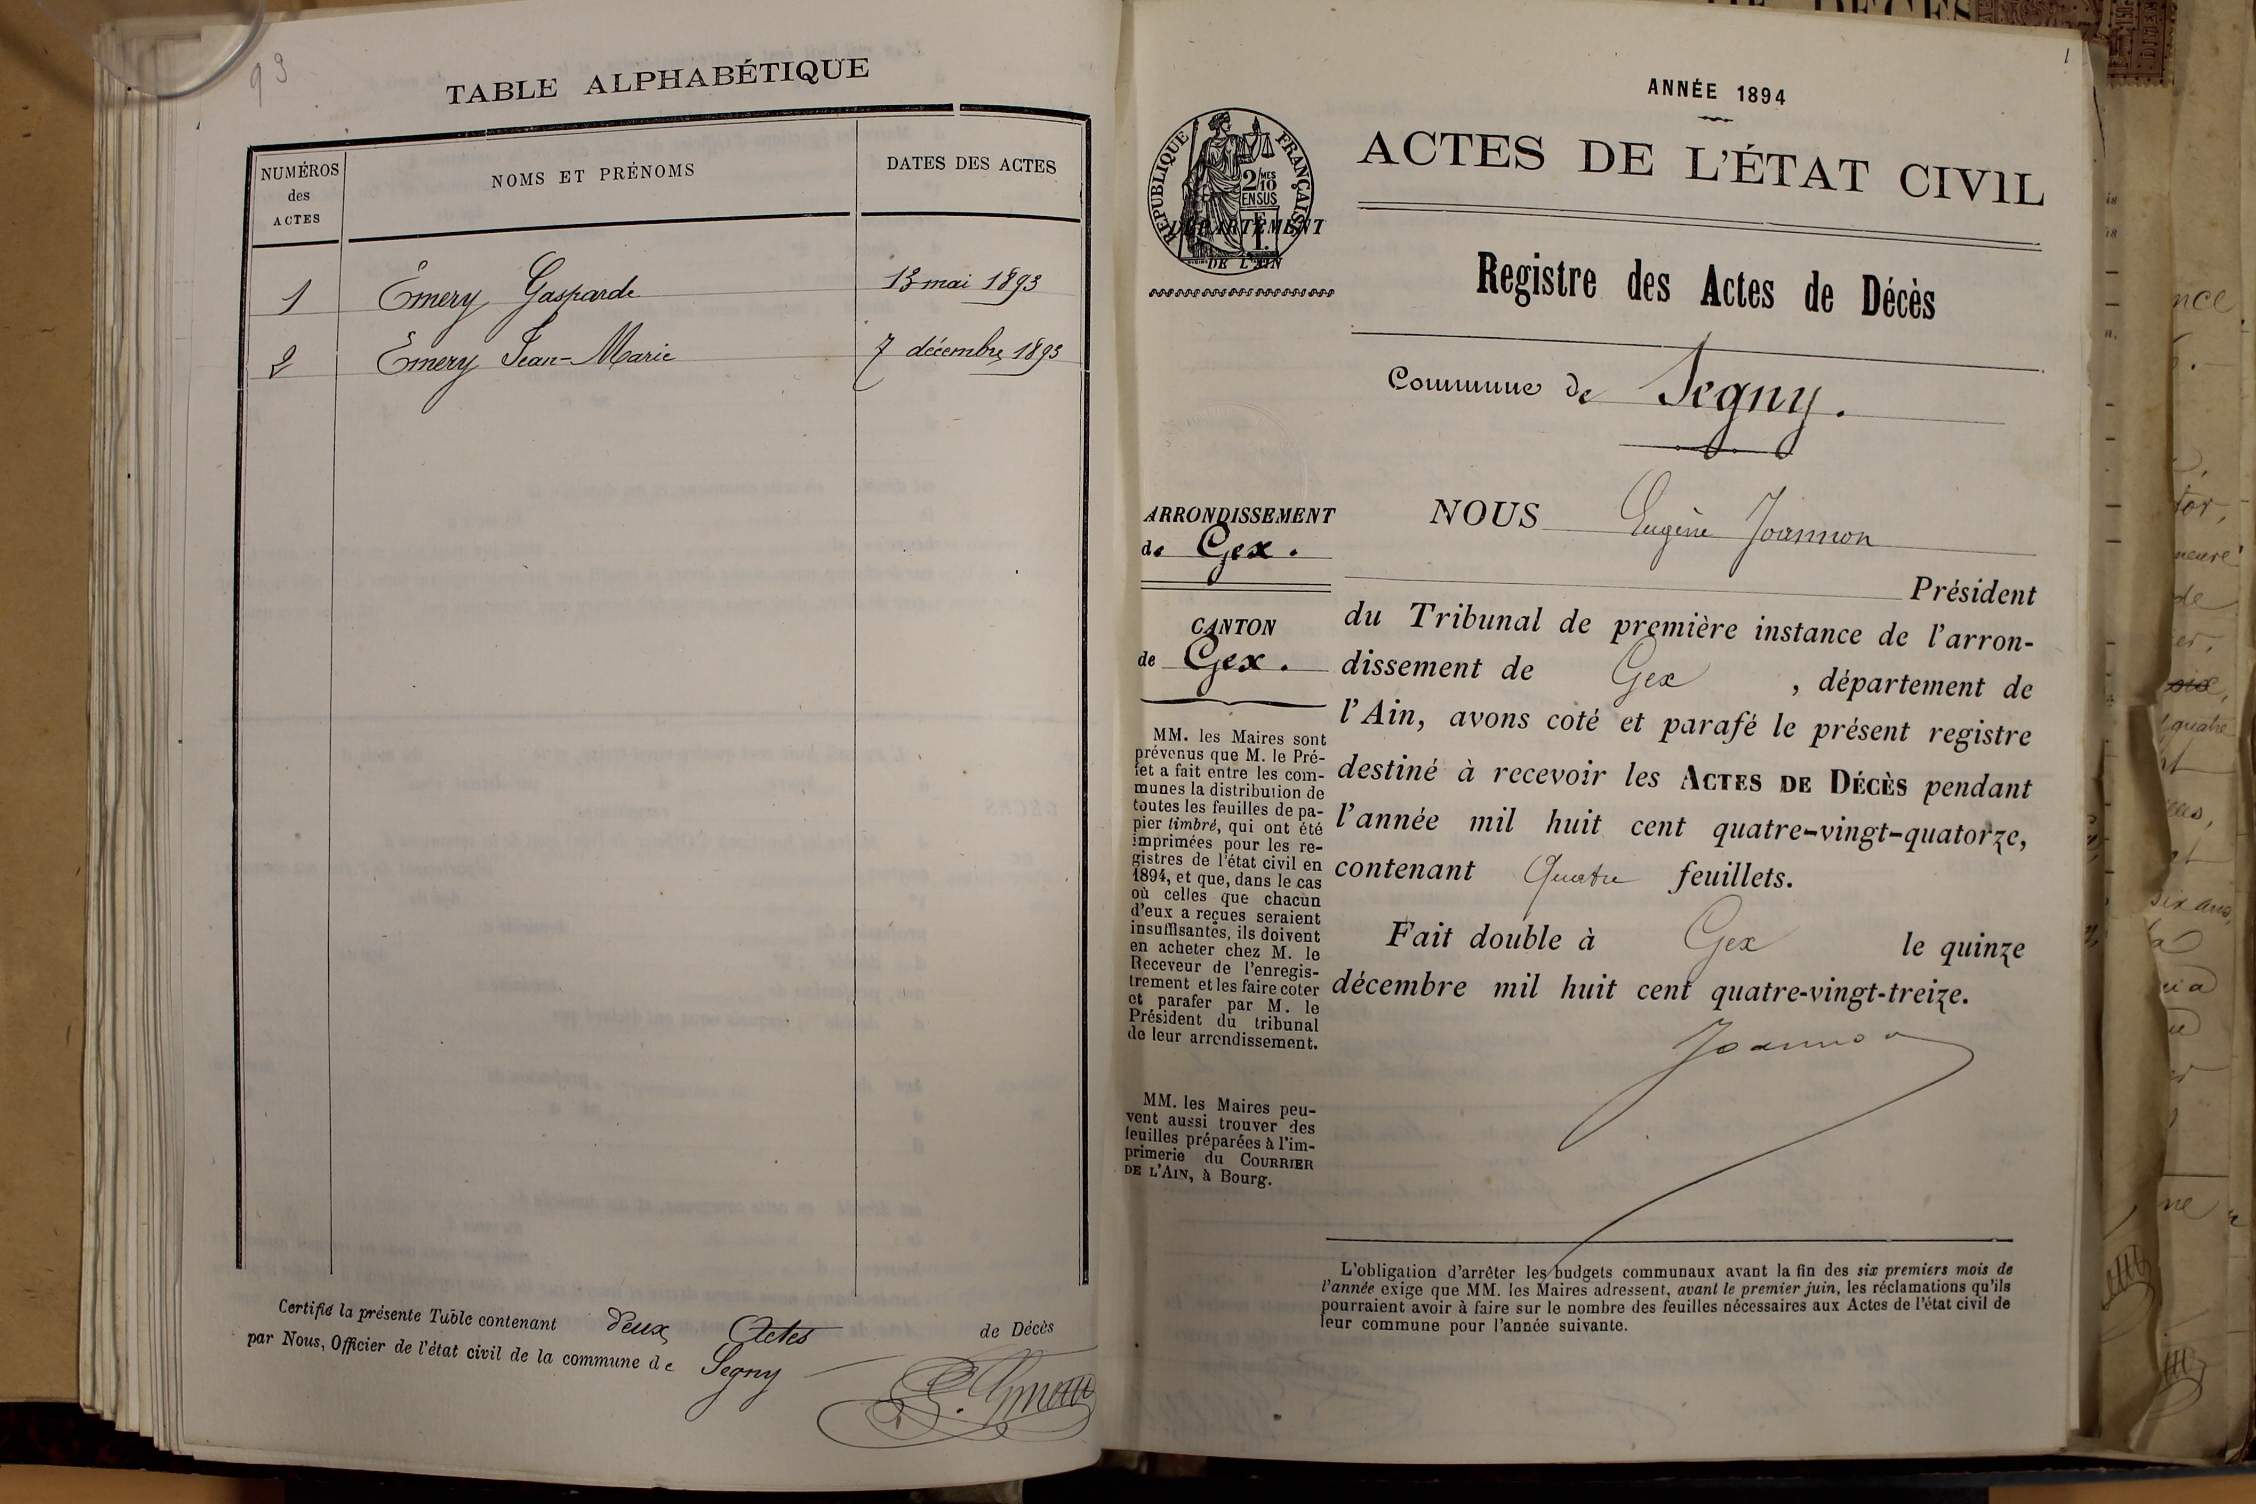 93
TABLE ALPHABÉTIQUE
NUMÉROS
des
ACTES
NOMS ET PRÉNOMS
DATES DES ACTES
1 Émery Gasparde 13 mai 1893
2 Émery Jean-Marie 7 décembre 1893
Certifié la présente Table contenant deux Actes de Décès
par Nous, Officier de l'état civil de la commune de Segny
1
ANNÉE 1894
ACTES DE L'ÉTAT CIVIL
RÉPUBLIQUE FRANÇAISE
2/10MES
EN SUS
1 F.
DÉPARTEMENT
DE L'AIN
Registre des Actes de Décès
Commune de Segny.
ARRONDISSEMENT
de Gex.
CANTON
de Gex.
MM. les Maires sont
prévenus que M. le Pré-
fet a fait entre les com-
munes la distribution de
toutes les feuilles de pa-
pier timbré, qui ont été
imprimées pour les re-
gistres de l'état civil en
1894, et que, dans le cas
où celles que chacun
d'eux a reçues seraient
insuffisantes, ils doivent
en acheter chez M. le
Receveur de l'enregis-
trement et les faire coter
et parafer par M. le
Président du tribunal
de leur arrondissement.
MM. les Maires peu-
vent aussi trouver des
feuilles préparées à l'im-
primerie du COURRIER
DE L'AIN, à Bourg.
NOUS Eugène Joannon
Président
du Tribunal de première instance de l'arron-
dissement de Gex , département de
l'Ain, avons coté et parafé le présent registre
destiné à recevoir les ACTES DE DÉCÈS pendant
l'année mil huit cent quatre-vingt-quatorze,
contenant Quatre feuillets.
Fait double à Gex le quinze
décembre mil huit cent quatre-vingt-treize.
Joannon
L'obligation d'arrêter les budgets communaux avant la fin des six premiers mois de
l'année exige que MM. les Maires adressent, avant le premier juin, les réclamations qu'ils
pourraient avoir à faire sur le nombre des feuilles nécessaires aux Actes de l'état civil de
leur commune pour l'année suivante.